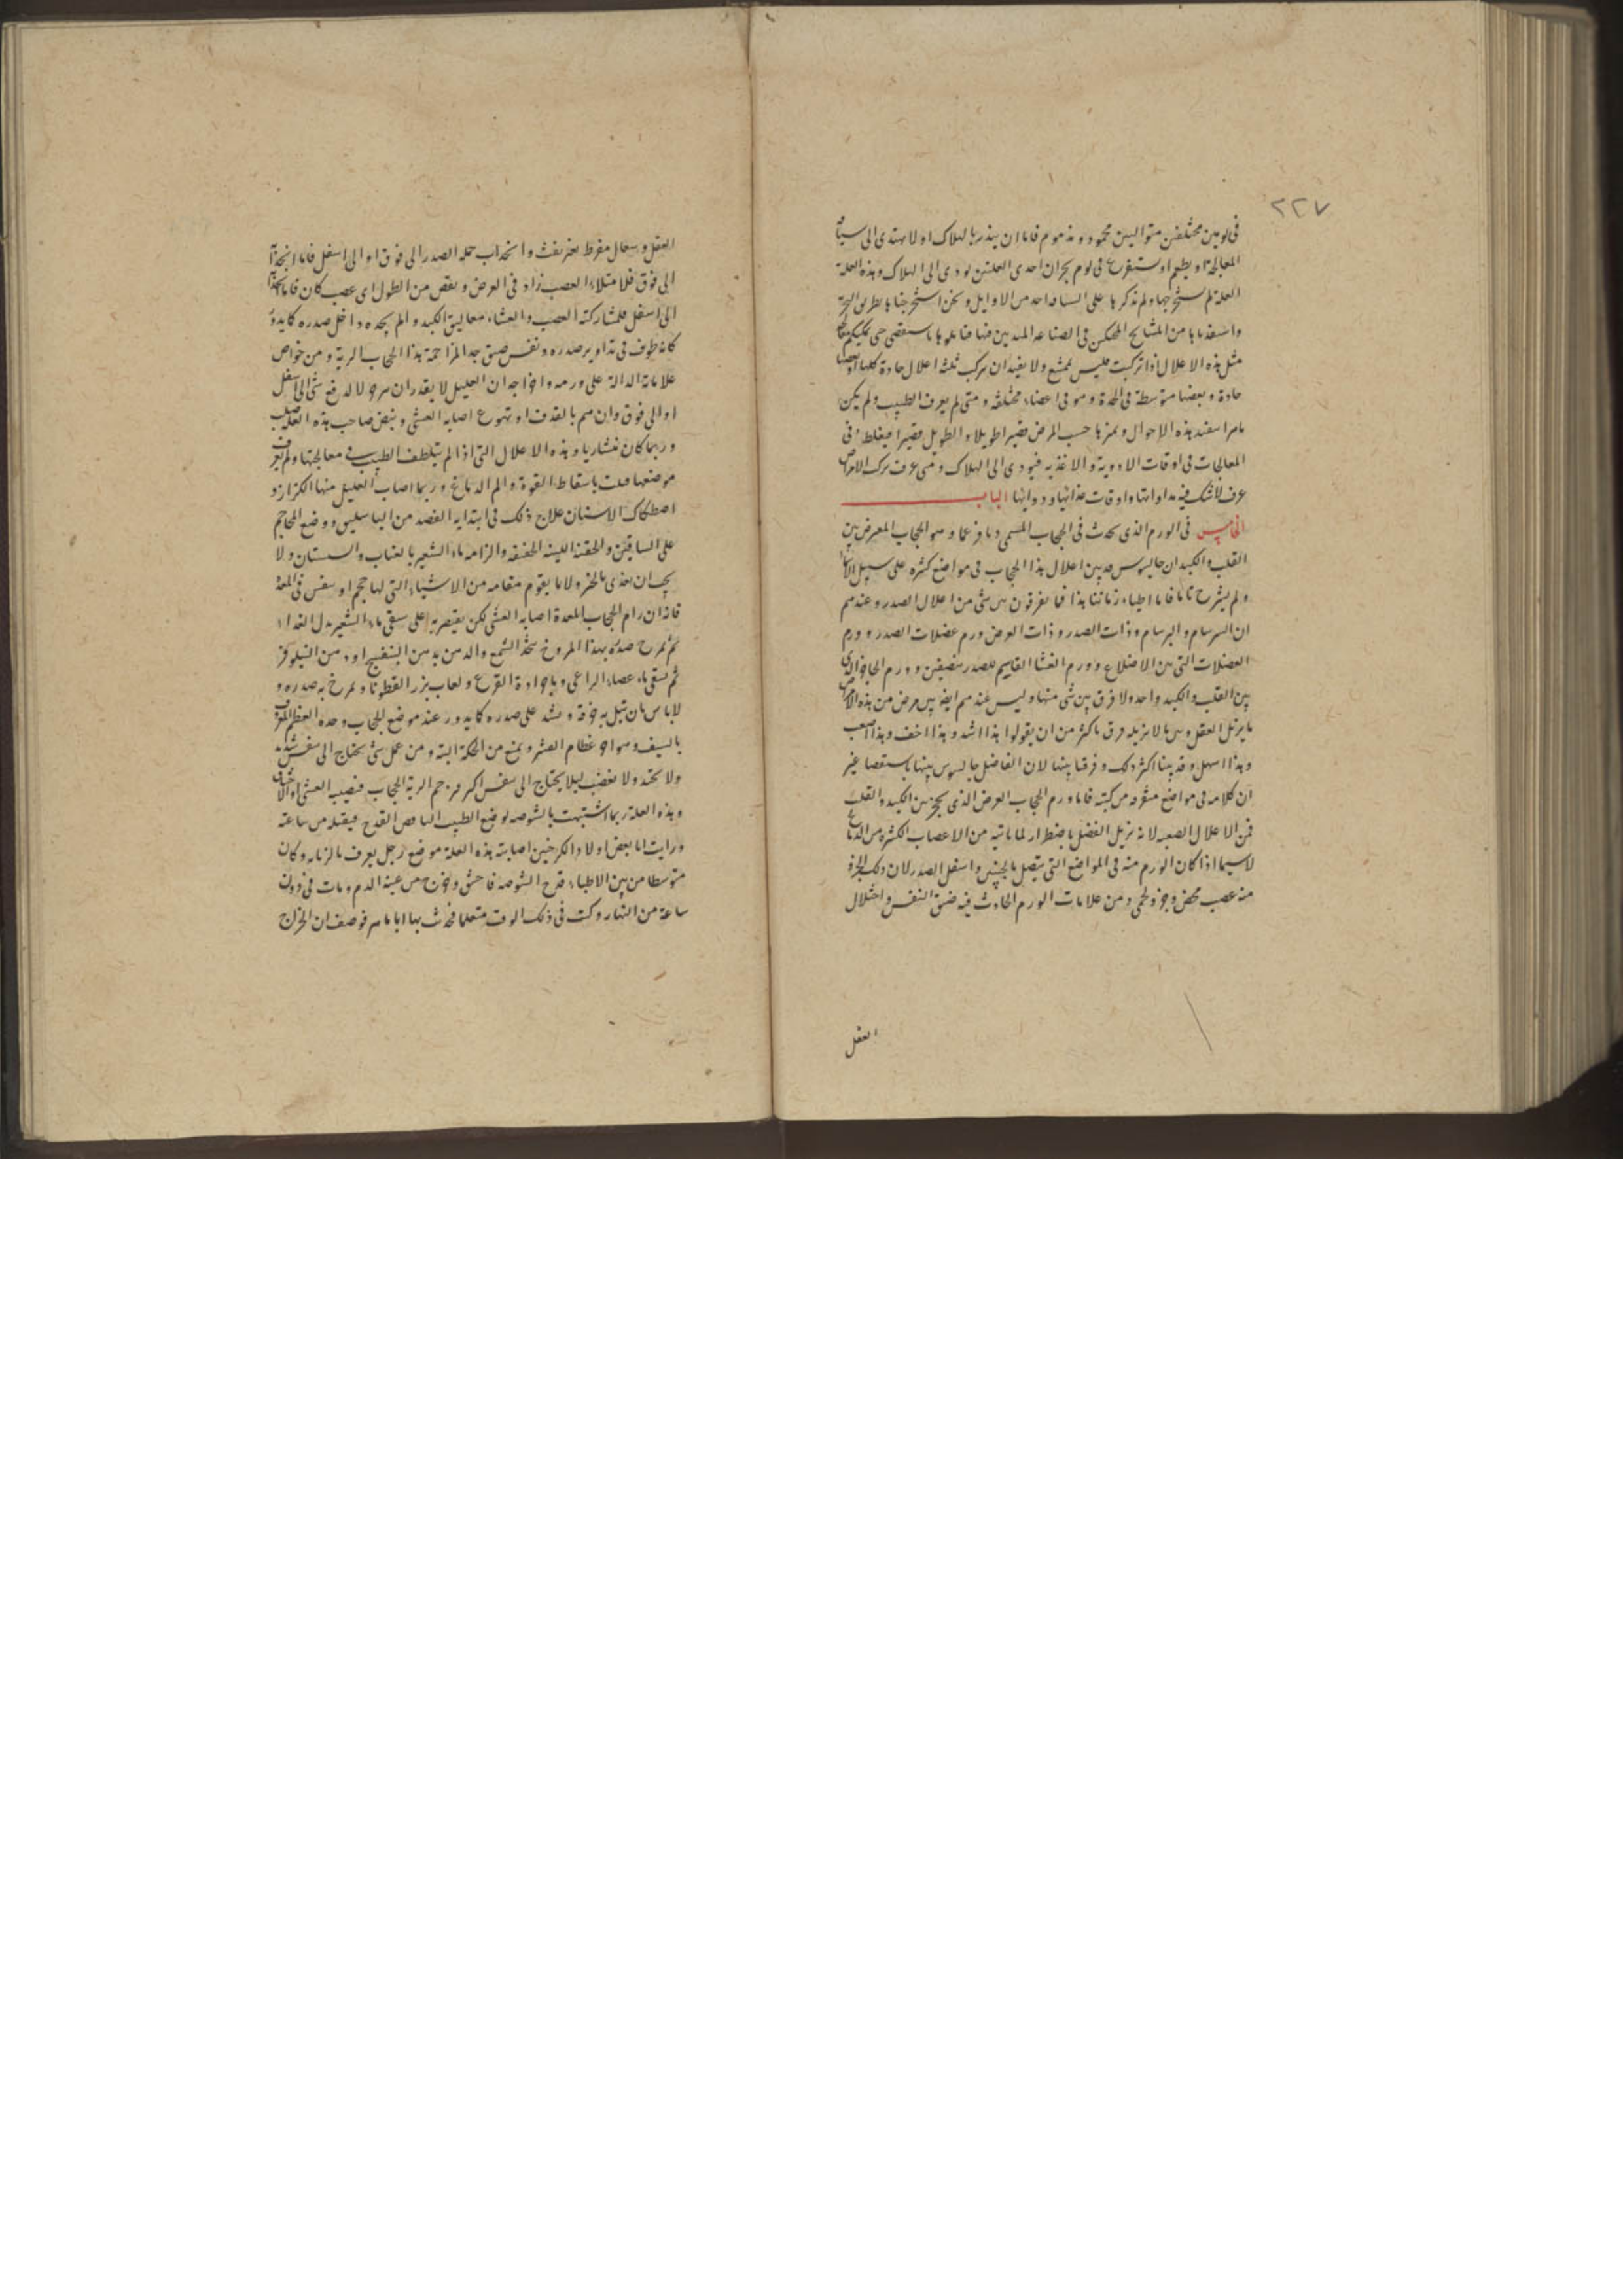 ٢٢٧
في يومين مختلفين متواليين محمود ومذموم فاما ان ينذر بالهلاك او لا يهتدى الى سياقة
المعالجة او يطعم او يستفرغ في يوم بحران احدى العلتين يودى الى الهلاك وهذه العلة
العلة لم يستخرجها ولم يذكرها على السياقة احد من الاوايل ونحن استخرجناها بطريق التجربة
واستفدناها من المشايخ المحنكين في الصناعة فتاملوها باستقصى حتى
مثل هذه الاعلال اذا تركبت فليس بممتنع ولا بعيد ان يتركب ثلث اعلال حادة كلها او بعضها
حادة وبعضها متوسطة في الحدة وهو في اعضاء مختلفة ومتى لم يعرف الطبيب ولم يكن
ماهرا بتفقد هذه الاحوال وتميزها حسب المرض قصيرا طويلا والطويل قصيرا فيغلط في
المعالجات في اوقات الادوية والاغذيه فيودى الى الهلاك ومتى عرف تركب الامراض
عرف لاشك فيه مداواتها واوقات غذائها ودوائها الباب
الخامس في الورم الذى يحدث في الحجاب المسمى ديافرغما وهو الحجاب المعترض بين
القلب والكبد ان جالينوس قد بين اعلال هذا الحجاب في مواضع كثيره على سبيل
ولم يشرح تاما فاما اطباء زماننا هذا فما يفرقون بين شى من اعلال الصدر وعندهم
ان السرسام والبرسام وذات الصدر وذات العرض ورم عضلات الصدر وورم
العضلات التى بين الاضلاع وورم الغشا القاسم للصدر بنصفين وورم الحاجز الذى
بين القلب والكبد واحد ولا فرق بين شى منها وليس عندهم ايضا بين مرض من هذه الامراض
ما يزيل العقل وبين ما لا يزيله فرق باكثر من ان يقولوا هذا اشد وهذا اخف وهذا اصعب
وهذا اسهل وقد بينا اكثر ذلك وفرقنا بينها لان الفاضل جالينوس بينها باستقصا غير
ان كلامه في مواضع متفرقه من كتبه فاما ورم الحجاب العرض الذى يحجز بين الكبد والقلب
فمن الاعلال الصعبه لانه يزيل العقل باضطرار لما ياتيه من الاعصاب الكثيره من الدماغ
لا سيما اذا كان الورم منه في المواضع التى يتصل بالجنبين واسفل الصدر لان ذلك الجزء
منه عصب محض وجزء لحمى ومن علامات الورم الحادث فيه ضيق النفس واختلال
العقل
العقل وسعال مفرط بغير نفث وانجذاب جملة الصدر الى فوق او الى اسفل فاما انجذابها
الى فوق فلامتلاء العصب زاد في العرض ونقص من الطول اى عصب كان فاما انجذابها
الى اسفل فلمشاركته العصب والغشاء معاليق الكبد والم يجده داخل صدره كما يدور
كانه يطوف في تداوير صدره ونفس ضيق جدا لمزاحمة هذا الحجاب الرية ومن خواص
علاماته الدالة على ورمه واوجاعه ان العليل لا يقدر ان يتزحر لا لدفع شى الى اسفل
او الى فوق وان هم بالقذف او تهوع اصابه الغشى ونبض صاحب هذه العلة صلب
وربما كان منشاريا وهذه الاعلال التى اذا لم يتلطف الطبيب في معالجتها ولم يعرف
موضعها قتلت باسقاط القوة والم الدماغ وربما اصاب العليل منها الكزاز و
اصطكاك الاسنان علاج ذلك في ابتدايه الفصد من الباسليق ووضع المحاجم
على الساقين والحقنه اللينه الخفيفه والزامه ماء الشعير بالعناب والسبستان ولا
يجب ان يغذى بالخبز ولا ما يقوم مقامه من الاشياء التى لها حجم او ينفس في المعدة
فانه ان زاحم الحجاب المعدة اصابه الغشى لكن يقتصر به على سقى ماء الشعير بدل الغذاء
ثم يمرخ صدره بهذا المروخ يتخذ الشمع والدهن من البنفسج او دهن النيلوفر
ثم يسقى ماء عصاء الراعى وماء جرادة القرع ولعاب بزر القطونا ويمرخ به صدره و
لا باس بان تبل به خرقة وتشد على صدره كما يدور عند موضع الحجاب وحده العظم المعروف
بالسيف وهو اخر عظام القص ويمنع من الحركة البتة ومن عمل شى يحتاج الى نفس شديد
ولا يحتد ولا يغضب ليلا يحتاج الى نفس اكبر فيزحم الرية الحجاب فيصيبه الغشى او الاختناق
وهذه العلة ربما اشتبهت بالشوصه فوضع الطبيب الناقص القدح فيقتله من ساعته
ورايت انا بعض اولاد الكرخيين اصابته هذه العلة فوضع رجل يعرف بالزيات وكان
متوسطا من بين الاطباء قدح الشوصه فاحتق وخرج من عينه الدم ومات في دون
ساعة من النهار وكنت في ذلك الوقت متعلما فحدثت بها ابا ماهر فوصف ان الخراج